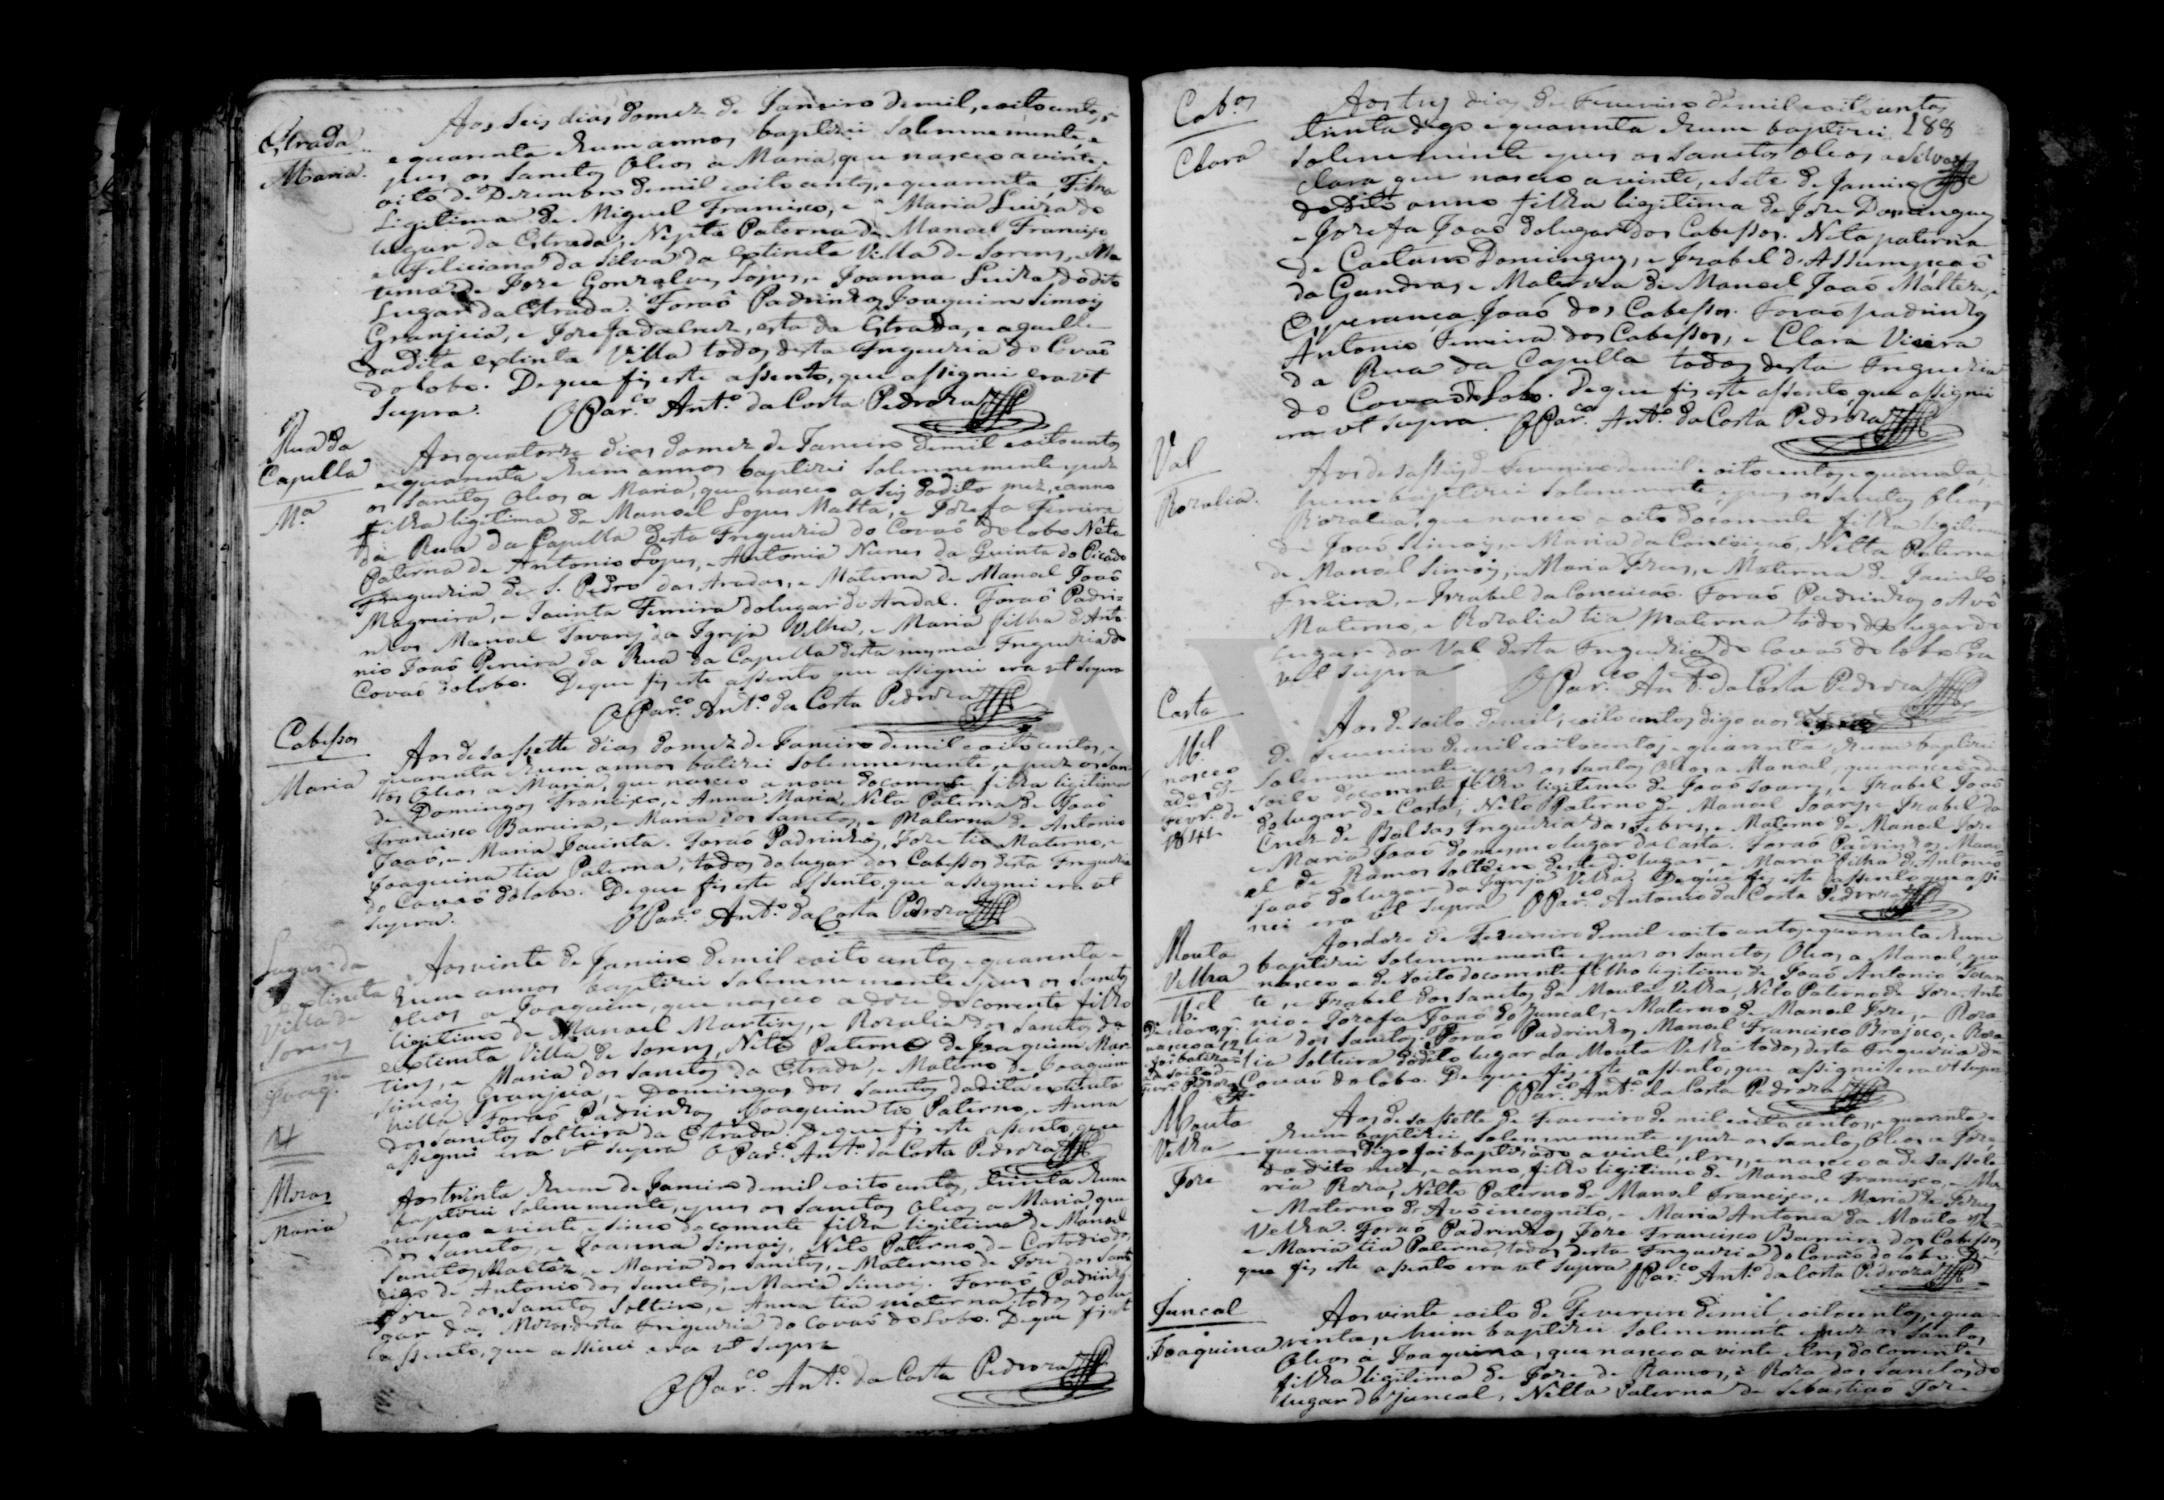 Estrada
Maria
Aos seis dias do mez de Janeiro de mil, e oito centos,
e quarenta e hum annos baptizei solemnemente, e
puz os Sanctos Oleos a Maria, que nasceo a vinte e
oito de Dezembro de mil e oito centos, e quarenta, Filha
Ligitima de Miguel Francisco, e Maria Luiza do
lugar da Estrada, Nepta Paterna de Manoel Francisco
e Feliciana da Silva da extincta Villa de Sorens, e Ma
terna de Joze Gonzalves Lopes, e Joanna Luiza do dito
Lugar da Estrada. Foraõ Padrinhos Joaquim Simois
Granjeia, e Jozefa da Cruz, esta da Estrada, e aquelle
da dita extinta Villa todos desta Freguezia do Covaõ
do Lobo. De que fiz este assento, que assignei era ut
supra. O Par.co Ant.o da Costa Pedroza
Rua da
Capella
M.a
Aos quatorze dias do mez de Janeiro de mil e oito centos
e quarenta e hum annos baptizei solemnemente e puz
os Sanctos Oleos a Maria, que nasceo a seis do dito mez, e anno
filha ligitima de Manoel Lopes Matta, e Jozefa Ferreira
da Rua da Capella desta Freguezia do Covaõ do Lobo Neta
Paterna de Antonio Lopes, e Antonia Nunes da Quinta do Picado
Freguezia de S. Pedro das Aradas, e Materna de Manoel Joaõ
Magreira, e Jacinta Ferreira do lugar do Andal. Foraõ Padri=
nhos Manoel Tavares da Igreja Velha, e Maria filha de Anto
nio Joaõ Pereira da Rua da Capella desta mesma Freguezia do
Covaõ do Lobo. De que fiz este assento que assignei era ut supra
O Par.co Ant.o da Costa Pedroza
Cabessos
Maria
Aos desassette dias do mez de Janeiro de mil e oito centos, e
quarenta e hum annos batizei solemnemente, e puz os San
tos Oleos a Maria, que nasceo a nove do corrente filha ligitima
de Domingos Francisco, e Anna Maria, Neta Paterna de Joaõ
Francisco Barreira, e Maria dos Sanctos, e Materna de Antonio
Joaõ, e Maria Jacinta. Foraõ Padrinhos Joze tio Materno, e
Joaquina tia Paterna, todos do lugar dos Cabessos desta Freguezia
do Covaõ do Lobo. De que fiz este assento, que assignei era ut
supra. O Par.co Ant.o da Costa Pedroza
Lugar da
extincta
Villa de
Sorens
Joaq.m
Aos vinte de Janeiro de mil e oito centos e quarenta e
hum annos baptizei solemnemente e puz os Sanctos
Oleos a Joaquim, que nasceo a doze do corrente filho
ligitimo de Manoel Martins, e Rozalia dos Sanctos da
extincta Villa de Sorens, Neto Paterno de Joaquim Mar
tins, e Maria dos Sanctos da Estrada, e Materno de Joaquim
Simois Granjeia, e Domingas dos Sanctos da dita extincta
Villa. Foraõ Padrinhos Joaquim tio Paterno, e Anna
dos Sanctos solteira da Estrada. De que fiz este assento, que
assignei era ut supra O Par.co Ant.o da Costa Pedroza
Moras
Maria
Aos trinta e hum de Janeiro de mil e oito centos, trinta e hum
baptizei solenemente, e puz os Sanctos Oleos a Maria, que
nasceo a vinte e sinco do corrente filha ligitima de Manoel
dos Sanctos, e Joanna Simois, Neta Paterna de Custodio dos
Sanctos Maltez, e Maria dos Sanctos, e Materna de Joze dos Sanctos
digo de Antonio dos Sanctos, e Maria Simois. Foraõ Padrinhos
Joze dos Sanctos Solteiro, e Anna tia materna todos do lu
gar das Moras desta Freguezia do Covaõ do Lobo. De que fiz este
assento, que assinei era ut supra
O Par.co Ant.o da Costa Pedroza
188
Cab.os
Clara
Aos tres dias de Fevereiro de mil e oito centos
trinta digo e quarenta e hum baptizei
solenemente e puz os Sanctos Oleos a
Clara que nasceo a vinte, e sete de Janeiro
do dito anno filha ligitima de Joze Domingues
e Jozefa Joaõ do lugar dos Cabessos. Neta paterna
de Caetano Domingues, e Izabel d'Assumpçaõ
da Gandra, e Materna de Manoel Joaõ Maltez, e
Esperança Joaõ dos Cabessos. Foraõ padrinhos
Antonio Ferreira dos Cabessos, e Clara Vieira
da Rua da Capella todos desta Freguezia
do Covaõ do Lobo. De que fiz este assento, que assignei
era ut supra. O Par.co Ant.o da Costa Pedroza
Val
Rozalia.
Aos desasseis de Fevereiro de mil e oito centos, e quarenta, e
hum baptizei solenemente, e puz os Sanctos Oleos a
Rozalia, que nasceo a oito do corrente filha ligitima
de Joaõ Simois, e Maria da Conceiçaõ, Netta Paterna
de Manoel Simois, e Maria Jezus, e Materna de Jacinto
Freira, e Izabel da Conceicaõ. Foraõ Padrinhos o Avô
Materno, e Rozalia tia Materna todos do lugar do
lugar do Val desta Freguezia do Covaõ do Lobo Era
ut supra O Par.co Ant.o da Costa Pedroza
Costa
M.el
nasceo
a de
Fevr.o de
1841
Aos desoito de mil, e oito centos digo aos
de Fevereiro de mil e oito centos e quarenta e hum baptizei
solemnemente e puz os Santos Oleos a Manoel, que nasceo a de
soito do corrente filho ligitimo de Joaõ Soares, e Izabel Joaõ
do lugar da Costa, Neto Paterno de Manoel Soares, e Izabel da
Cruz de Balsas Freguezia das Febres, e Materno de Manoel Joze
e Maria Joaõ do mesmo lugar da Costa. Foraõ Padrinhos Mano
el de Ramos solteiro deste d.o lugar e Maria filha de Antonio
Joaõ do lugar da Igreja Velha. De que fiz este assento que assi
nei era ut supra O Par.co Antonio da Costa Pedroza
Mouta
Velha
M.el
Declaro, q.
nasceo a 12,
foi batizado
Aos doze de Fevereiro de mil e oito centos e quarenta e hum
baptizei solemnemente e puz os Sanctos Oleos a Manoel, que
nasceo a de soito do corrente filho legitimo de Joaõ Antonio
e Izabel dos Sanctos da Mouta Velha, Neto Paterno de Joze Anto
nio e Jozefa Joaõ do Juncal, e Materno de Manoel Joze, e Roza
lia dos Sanctos. Foraõ Padrinhos Manoel Francisco Brajoso, e Roza
lia solteira do dito lugar da Mouta Velha todos desta Freguezia do
Covaõ do Lobo. De que fiz este assento, que assignei era ut supra
O Par.co Ant.o da Costa Pedroza
Mouta
Velha
Joze
Aos desassette de Fevereiro de mil e oito centos, e quarenta e
hum baptizei solemnemente e puz os Sanctos Oleos a Joze
que nas digo foi baptizado a vinte, e tres, e nasceo a desassete
do dito mez, e anno, filho ligitimo de Manoel Francisco, e Ma
ria Roza, Netto Paterno de Manoel Francisco, e Maria de Jezus
e Materno de Avô incognito, e Maria Antonia da Mouta
Velha. Foraõ Padrinhos Joze Francisco Barreira dos Cabessos
e Maria tia Paterna, todos desta Freguezia do Covaõ do Lobo. De
que fiz este assento era ut supra O Par.co Ant.o da Costa Pedroza
Juncal
Joaquina
Aos vinte e oito de Fevereiro de mil, e oito centos, e qua
renta, e hum baptizei solenemente e puz os Santos
Oleos a Joaquina, que nasceo a vinte e tres do corrente
filha ligitima de Joze de Ramos, e Roza dos Sanctos do
lugar do Juncal, Netta Paterna de Sebastiaõ Joze